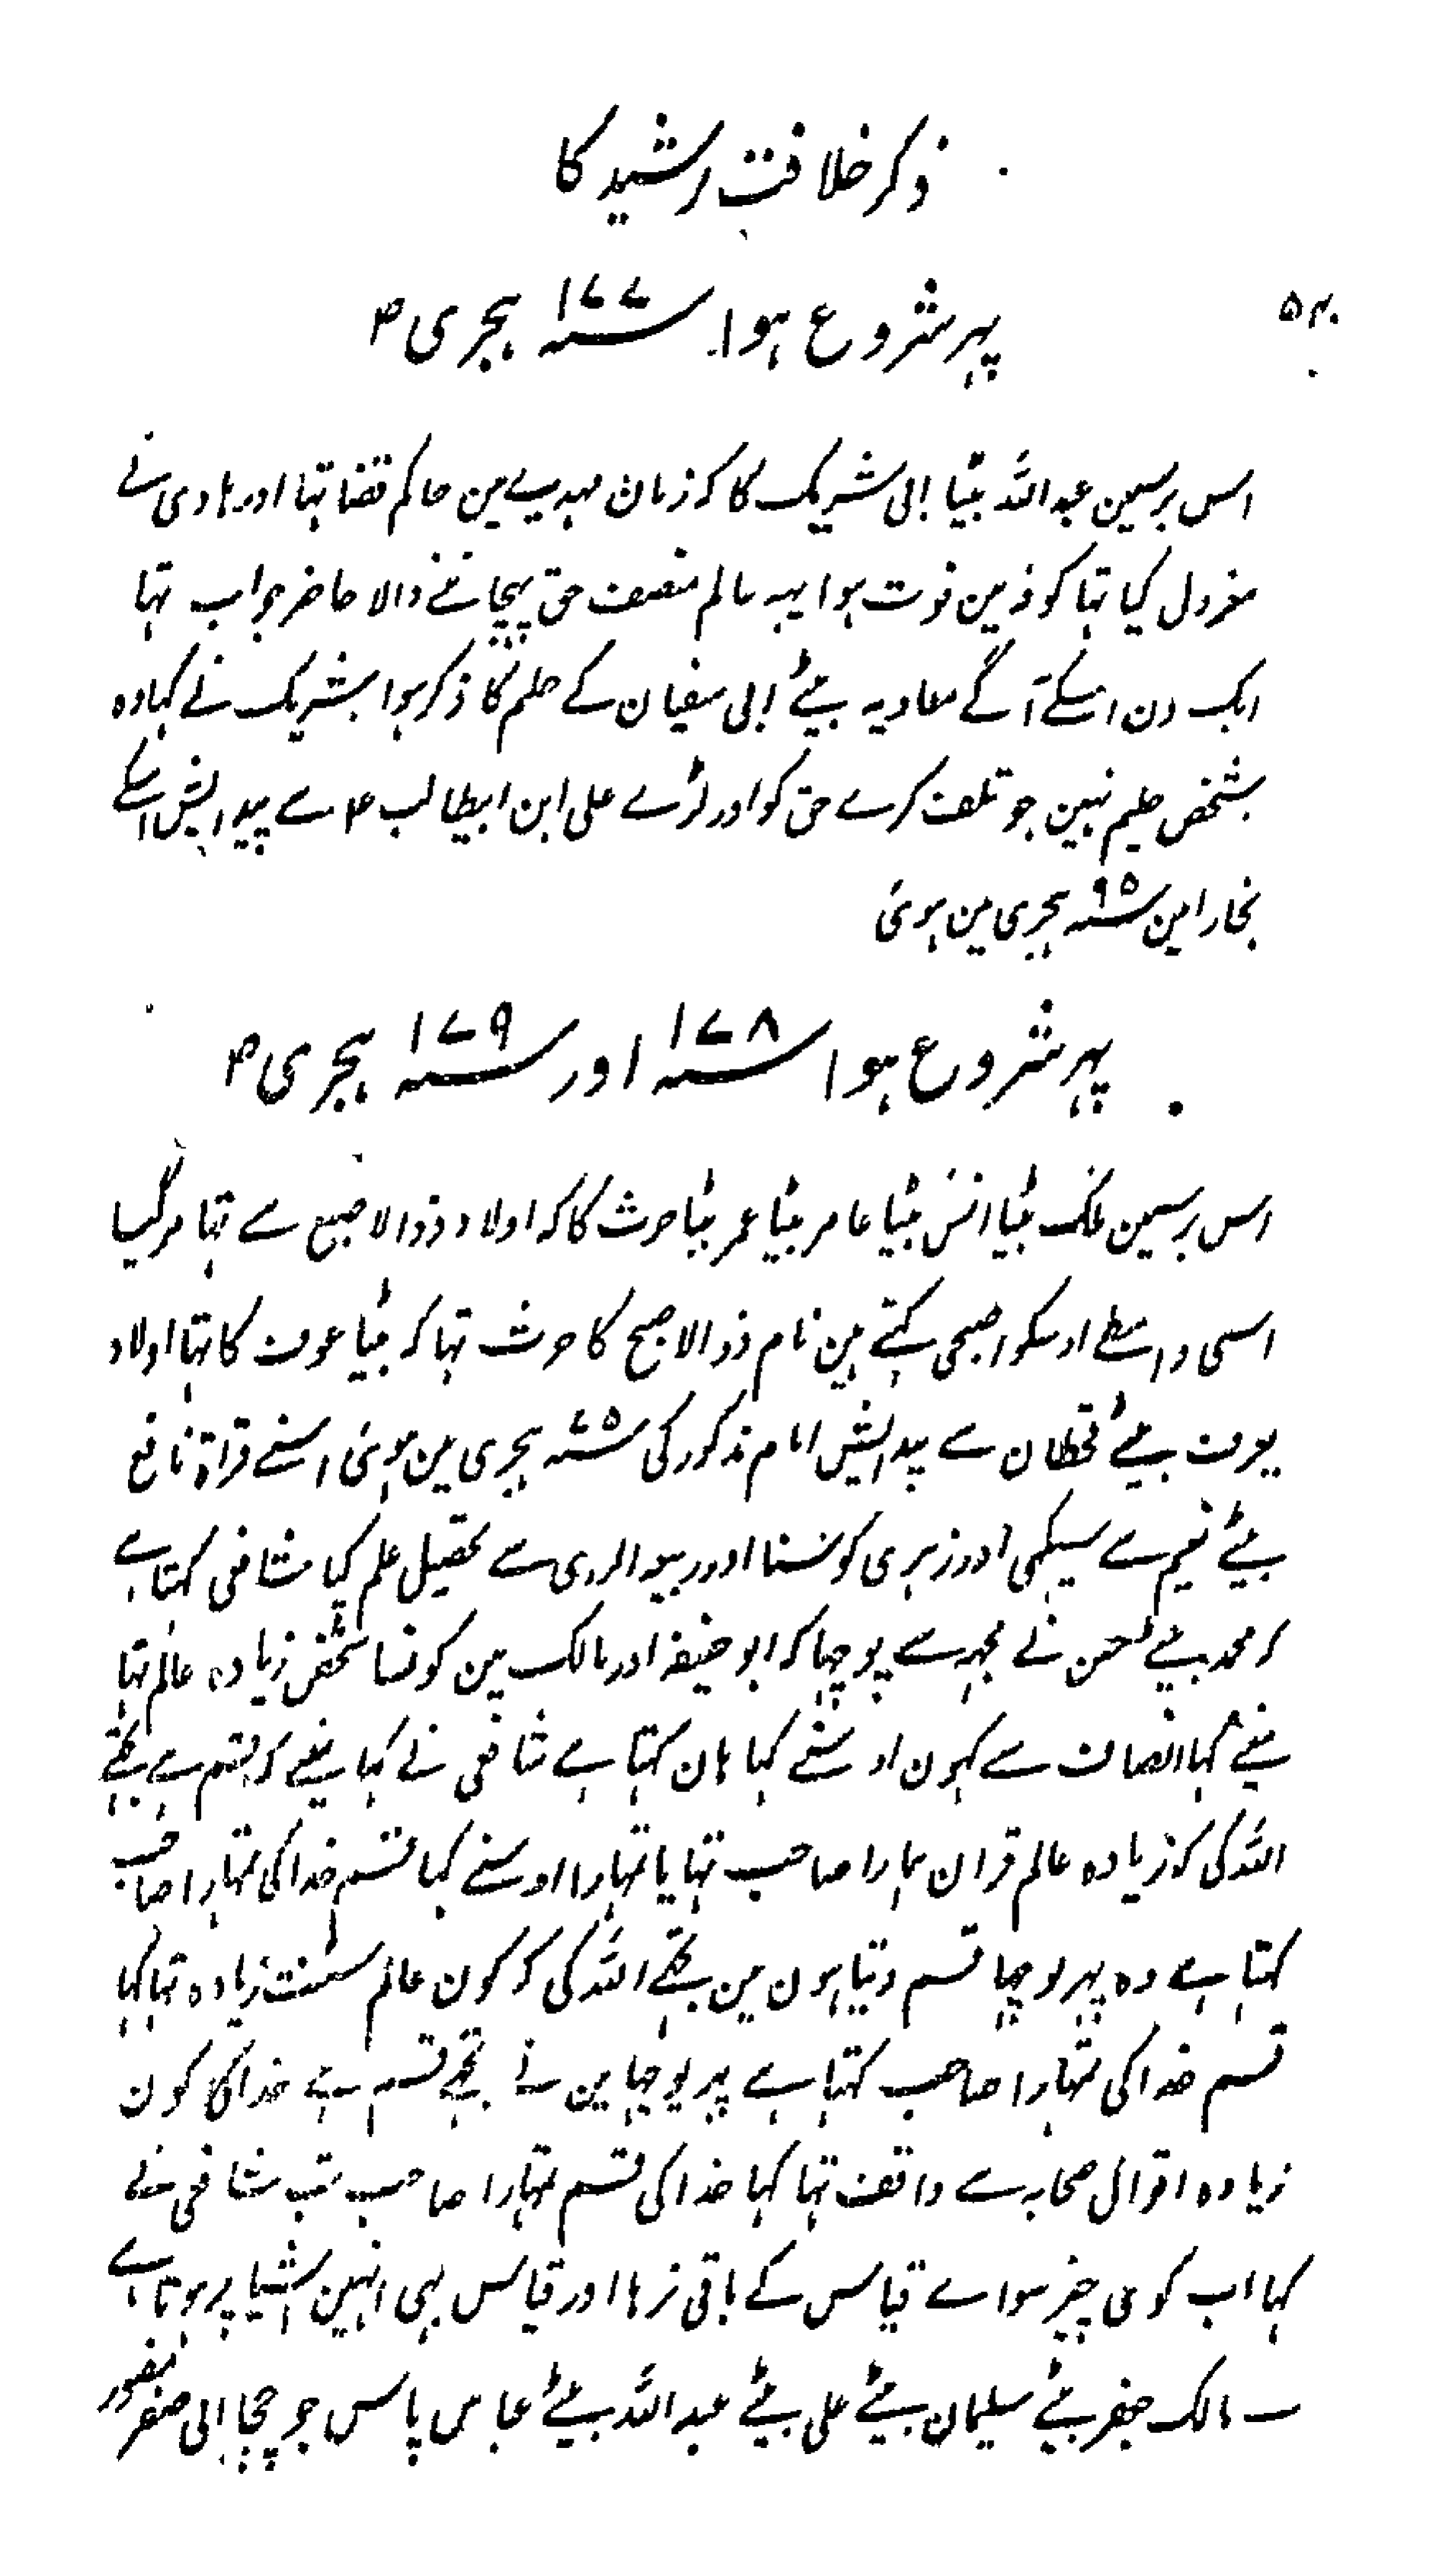 ذکر خلافت رشید کا
۵۴۰
پہر شروع ہوا سنہ ۱۷۷ ہجری م
اس برسمین عبد اللہ بیٹا ابی شریک کا کہ زمان مہدیے مین حاکم قضا تہا اور ہادی نے
معزول کیا تہا کوفہ مین فوت ہوا یہہ عالم منصف حق پہچاننے والا حاضر جواب تہا
ایک دن اسکے آگے معاویہ بیٹے ابی سفیان کے حلم کا ذکر ہوا شریک نے کہا وہ
شخص حلیم نہین جو تلف کرے حق کو اور لڑے علی ابن ابیطالب ع سے پیدایش اسکے
بخارا مین سنہ ۹۵ ہجری مین ہوئی
پہر شروع ہوا سنہ ۱۷۸ اور سنہ ۱۷۹ ہجری م
اس برسمین مالک بیٹا انس بیٹا عامر بیٹا عمر بیٹا حرث کا کہ اولاد ذو الاصبح سے تہا مرگیا
اسی واسطے اوسکو اصبحی کہتے ہین نام ذو الاصبح کا حرث تہا کہ بیٹا عوف کا تہا اولاد
یعرب بیٹے قحطان سے پیدایش امام مذکور کی سنہ ۷۵ ہجری مین ہوئی اسنے قراۃ نافع
بیٹے نعیم سے سیکہی اور زہری کو سنا اور ربیعہ الرای سے تحصیل علم کیا شافعی کہتا ہے
کہ محمد بیٹے حسن نے مجہسے پوچہا کہ ابو حنیفہ اور مالک مین کونسا شخص زیادہ عالم تہا
مینے کہا انصاف سے کہون اوسنے کہا ہان کہتا ہے شافعی نے کہا مینے کہ قسم ہے تجہے
اللہ کی کہ زیادہ عالم قران ہمارا صاحب تہا یا تمہارا اوسنے کہا قسم خدا کی تمہارا صاحب
کہتا ہے وہ پہر پوچہا قسم دیتا ہون مین تجہے اللہ کی کہ کون عالم سنت زیادہ تہا کہا
قسم خدا کی تمہارا صاحب کہتا ہے پہر پوچہا مین نے تجہے قسم ہے خدا کی کون
زیادہ اقوال صحابہ سے واقف تہا کہا خدا کی قسم تمہارا صاحب تب شافعی نے
کہا اب کوئی چیز سوائے قیاس کے باقی نرہا اور قیاس بہی انہین اشیا پر ہوتا ہے
مالک جعفر بیٹے سلیمان بیٹے علی بیٹے عبد اللہ بیٹے عباس پاس جو چچا ابی جعفر منصور